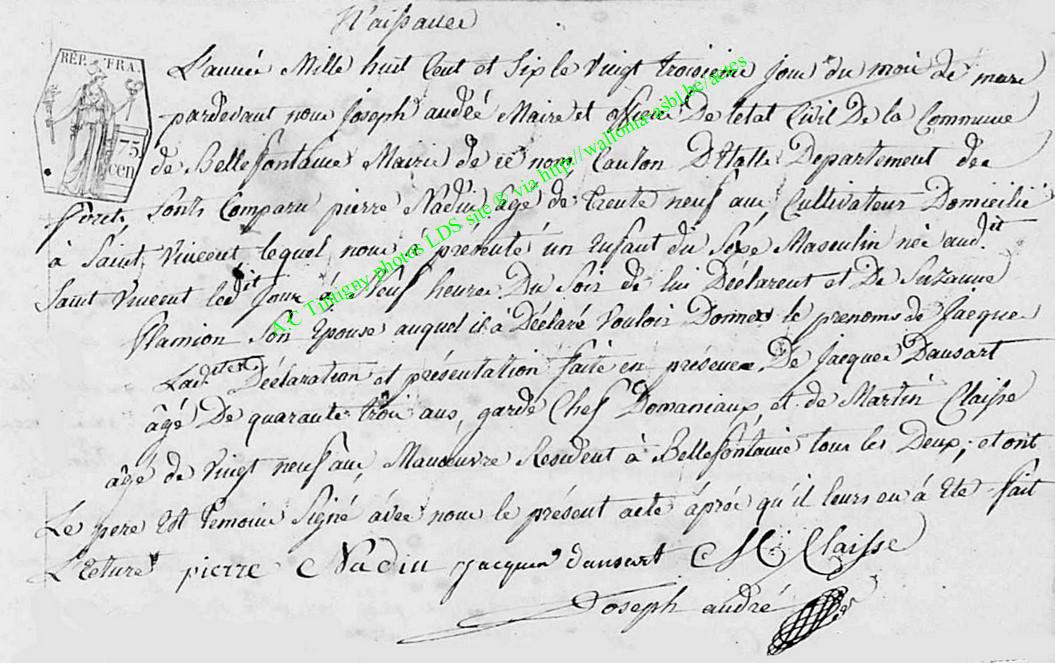 Naissance
REP. FRA.
75 cen
L'année Mille huit Cent et Six le vingt troisieme jour du mois de mars
pardevant nous Joseph andré Maire et officier De letat Civil De la Commune
de Bellefontaine Mairie de ce nom, Canton D'Etalle Departement des
forêts, Sonts Comparu pierre Nadin, âgé de trente neuf ans Cultivateur Domicilié
à Saint Vincent lequel nous à présenté un Enfant du Sexe Masculin née audit
Saint Vincent ledit jour à Neuf heures Du Soir de lui Déclarent et De Suzanne
Flamion Son Epouse auquel il à Déclaré Vouloir Donner le prenoms de Jacque
Laditen Déclaration et présentation faite en présence De Jacques Dausart
âgé De quarante trois ans, garde Chef Domaniaux, et de Martin Claisse
âgé de Vingt neuf ans Manoeuvre Resident à Bellefontaine tous les Deux, et ont
Le pere Est temoins Signé avec nous le présent acte après qu'il leurs en à Eté fait
L'Ecture pierre Nadin jacques dausart M Claisse
Joseph andré
A.C Tintigny photos LDS site © via http://wallonia-asbl.be/actes